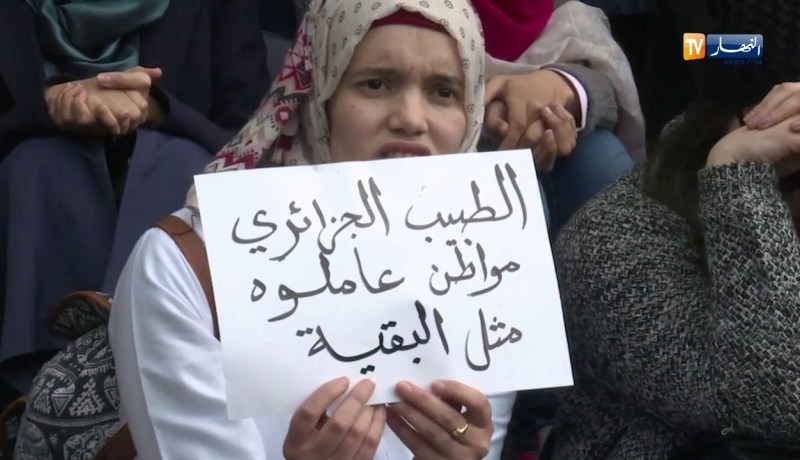 TV النهار
الطبيب الجزائري
مواطن عاملوه
مثل البقية